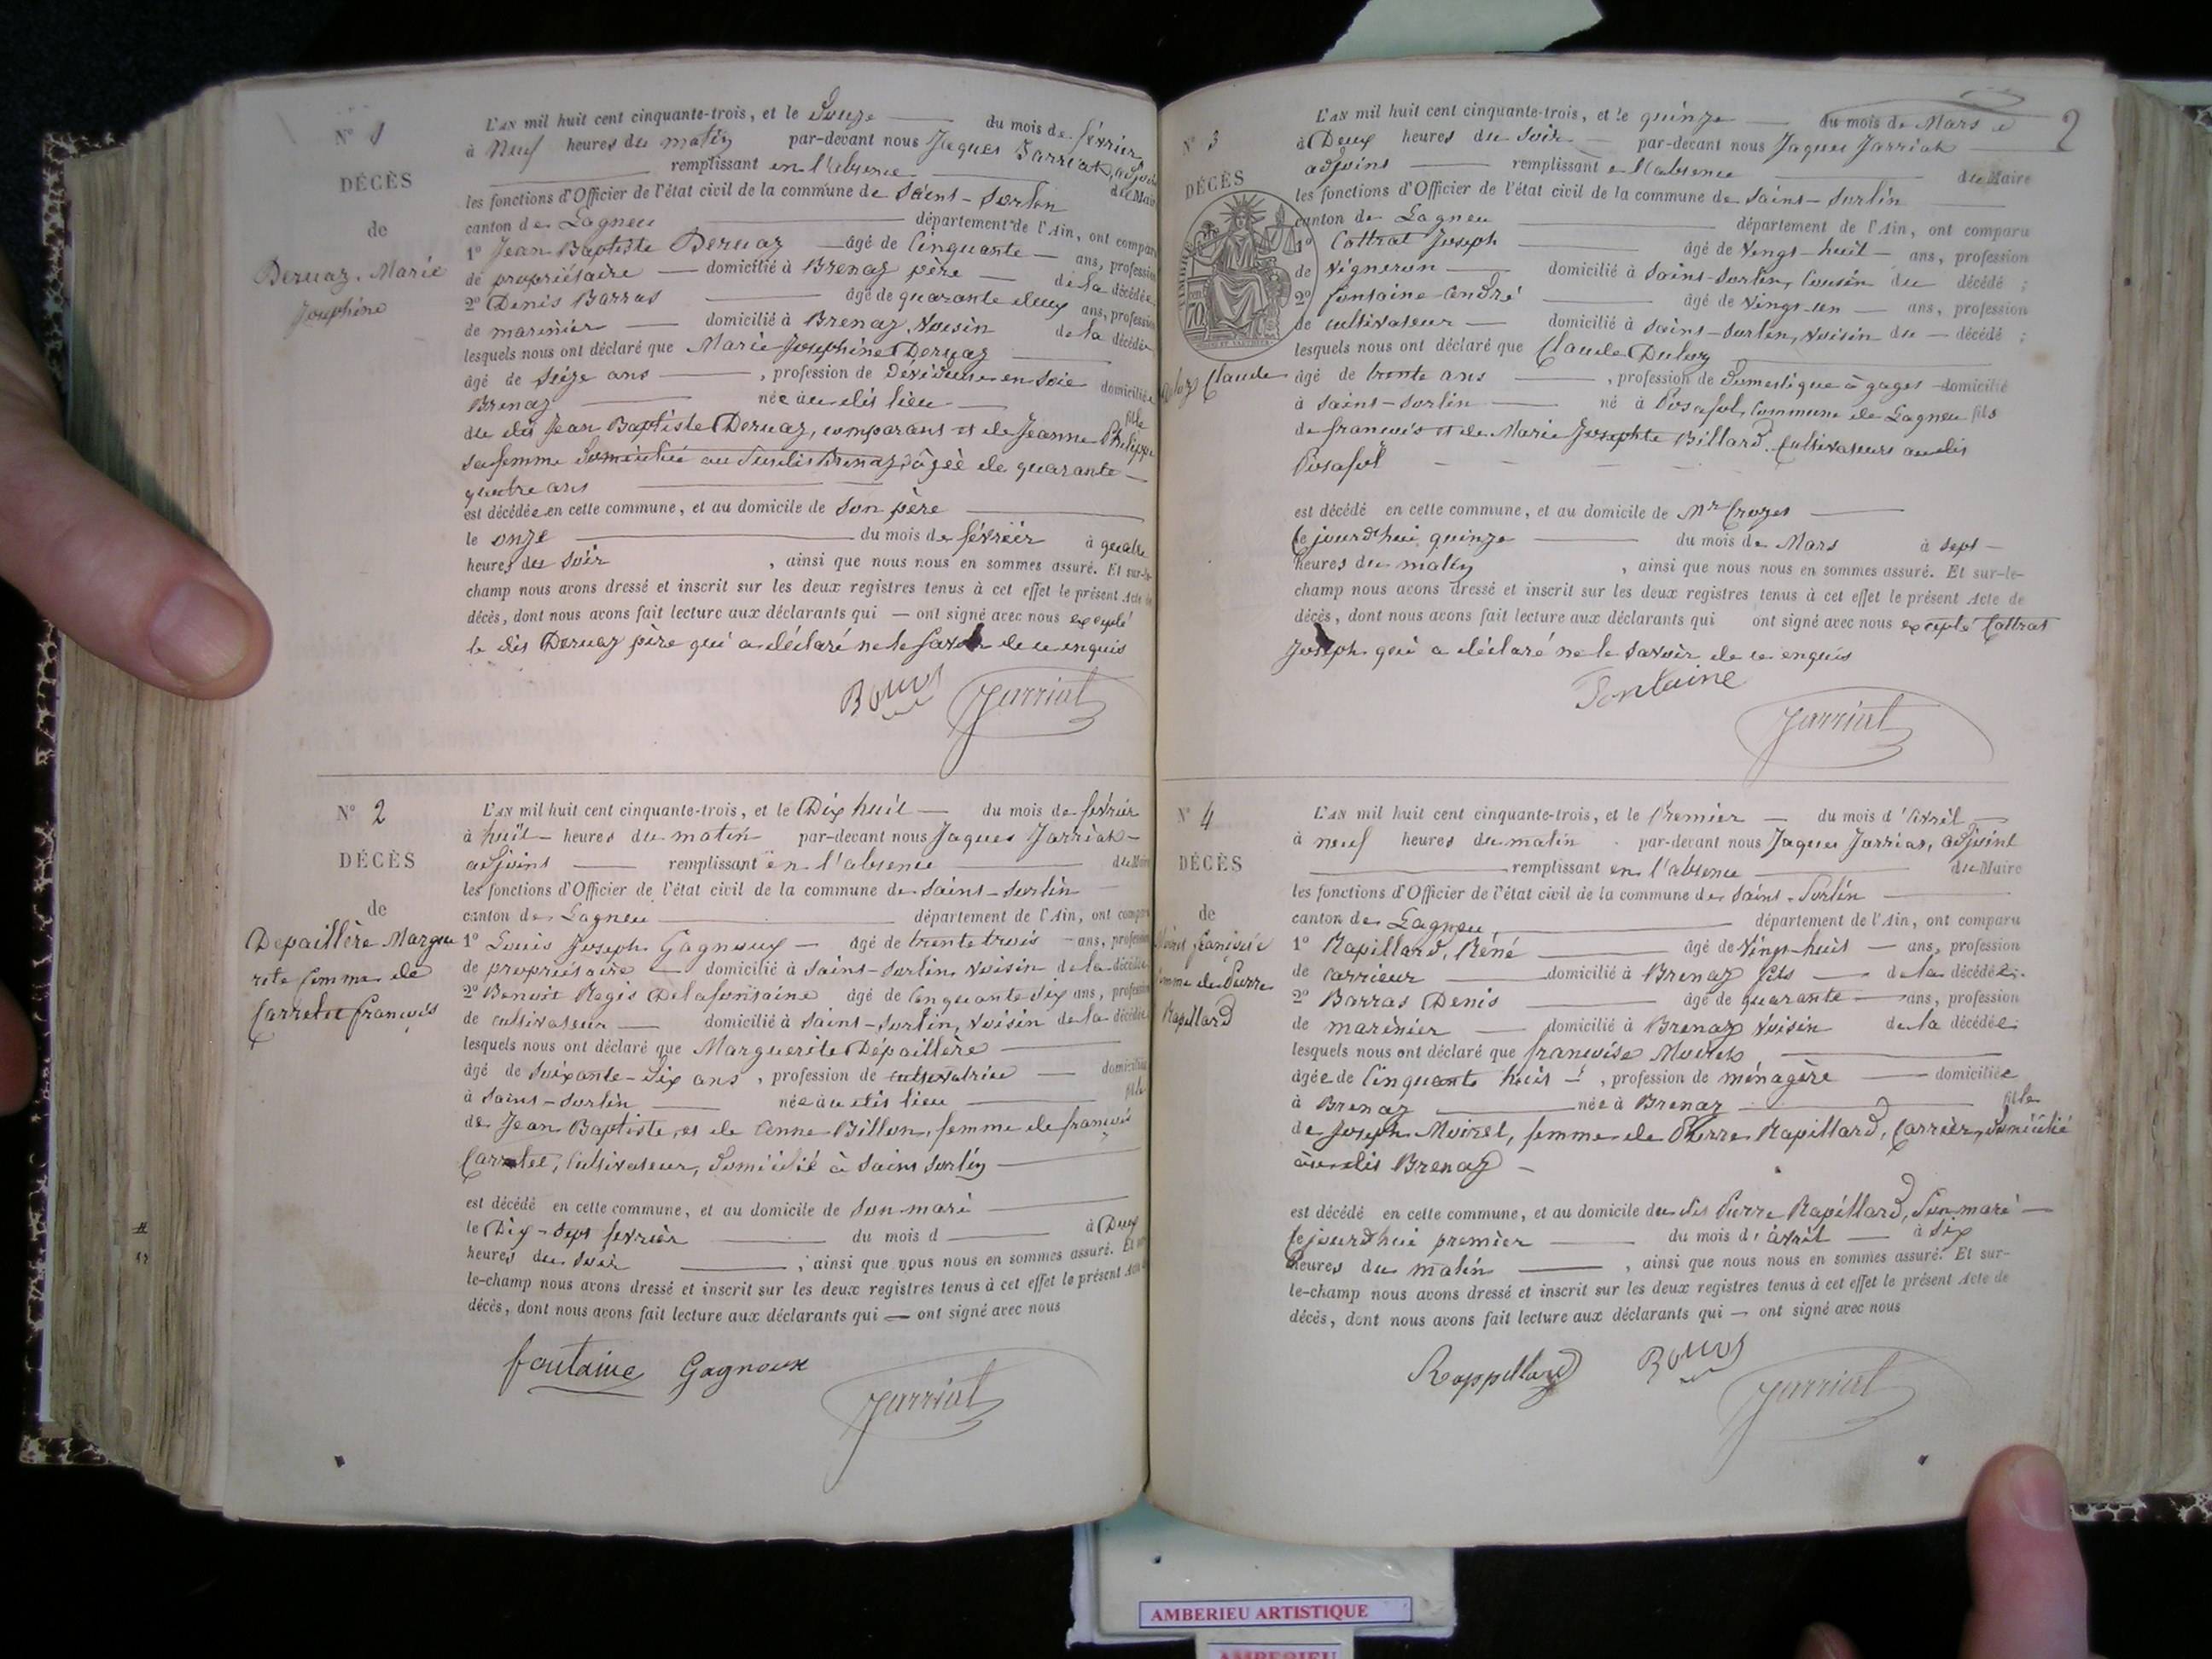 N° 1
DÉCÈS
de
Deruaz Marie
Josephine
L'AN mil huit cent cinquante-trois, et le Douze du mois de février
à Neuf heures du matin par-devant nous Jaques Jarriat, adjoint
remplissant en l'absence du Maire
les fonctions d'Officier de l'état civil de la commune de Saint-Sorlin
canton de Lagneu département de l'Ain, ont comparu
1° Jean Baptiste Deruaz âgé de Cinquante ans, profession
de propriétaire domicilié à Brenaz père de la décédée
2° Denis Barras âgé de quarante deux ans, profession
de marinier domicilié à Brenaz, Voisin de la décédée
lesquels nous ont déclaré que Marie Josephine Deruaz
âgé de Seize ans, profession de Dévideuse en Soie domiciliée
Brenaz née au dit lieu fille
du dit Jean Baptiste Deruaz, comparant et de Jeanne Philippe
sa femme Domiciliée au Susdit Brenaz, âgée de quarante
quatre ans
est décédée en cette commune, et au domicile de Son père
le onze du mois de février à quatre
heures du Soir, ainsi que nous nous en sommes assuré. Et sur-le-
champ nous avons dressé et inscrit sur les deux registres tenus à cet effet le présent Acte de
décès, dont nous avons fait lecture aux déclarants qui — ont signé avec nous excepté
le dit Deruaz père qui a déclaré ne le savoir de ce enquis
Jarriat
N° 2
DÉCÈS
de
Depaillère Margue
rite femme de
Carrelet françois
L'AN mil huit cent cinquante-trois, et le Dix huit du mois de février
à huit heures du matin par-devant nous Jaques Jarriat
adjoint remplissant en l'absence du Maire
les fonctions d'Officier de l'état civil de la commune de Saint-Sorlin
canton de Lagneu département de l'Ain, ont comparu
1° Louis Joseph Gagnoux âgé de trente trois ans, profession
de propriétaire domicilié à Saint-Sorlin, Voisin de la décédée
2° Benoit Regis Delafontaine âgé de Cinquante Six ans, profession
de cultivateur domicilié à Saint-Sorlin, Voisin de la décédée
lesquels nous ont déclaré que Marguerite Dépaillère
âgé de Soixante-Six ans, profession de cultivatrice domiciliée
à Saint-Sorlin née au dit lieu fille
de Jean Baptiste, et de Anne Billon, femme de françois
Carrelet, Cultivateur, Domicilié à Saint Sorlin
est décédé en cette commune, et au domicile de Son mari
le Dix-Sept février du mois d à Deux
heures du Soir ; ainsi que nous nous en sommes assuré. Et sur-
le-champ nous avons dressé et inscrit sur les deux registres tenus à cet effet le présent Acte de
décès, dont nous avons fait lecture aux déclarants qui — ont signé avec nous
fontaine Gagnoux
Jarriat
2
N° 3
DÉCÈS
Claude
L'AN mil huit cent cinquante-trois, et le quinze du mois de Mars
à Deux heures du Soir par-devant nous Jaques Jarriat
adjoint remplissant en l'absence du Maire
les fonctions d'Officier de l'état civil de la commune de Saint-Sorlin
canton de Lagneu département de l'Ain, ont comparu
1° Cottrat Joseph âgé de Vingt-huit ans, profession
de Vigneron domicilié à Saint-Sorlin, Cousin du décédé ;
2° fontaine André âgé de Vingt-un ans, profession
de cultivateur domicilié à Saint-Sorlin, Voisin du décédé ;
lesquels nous ont déclaré que Claude
âgé de trente ans, profession de Domestique à gages domicilié
à Saint-Sorlin né à Posafol, Commune de Lagneu fils
de francois et de Marie Josephte Billard, Cultivateurs au dit
Posafol
est décédé en cette commune, et au domicile de Mr Crozet
Ce jourd'hui quinze du mois de Mars à Sept
heures du matin, ainsi que nous nous en sommes assuré. Et sur-le-
champ nous avons dressé et inscrit sur les deux registres tenus à cet effet le présent Acte de
décès, dont nous avons fait lecture aux déclarants qui ont signé avec nous excepté Cottrat
Joseph qui a déclaré ne le savoir de ce enquis
Fontaine
Jarriat
N° 4
DÉCÈS
de
femme de Pierre
Rapillard
L'AN mil huit cent cinquante-trois, et le Premier du mois d'Avril
à neuf heures du matin par-devant nous Jaques Jarriat, adjoint
remplissant en l'absence du Maire
les fonctions d'Officier de l'état civil de la commune de Saint-Sorlin
canton de Lagneu, département de l'Ain, ont comparu
1° Rapillard, Réné âgé de Vingt-huit ans, profession
de carrieur domicilié à Brenaz fils de la décédée.
2° Barras Denis âgé de quarante ans, profession
de marinier domicilié à Brenaz Voisin de la décédée.
lesquels nous ont déclaré que francoise Moiret,
âgée de Cinquante huit, profession de ménagère domiciliée
à Brenaz née à Brenaz fille
de Joseph Moiret, femme de Pierre Rapillard, Carrier, Domicilié
au dit Brenaz
est décédé en cette commune, et au domicile du dit Pierre Rapillard, Son mari
Ce jourd'hui premier du mois d'Avril à Six
heures du matin, ainsi que nous nous en sommes assuré. Et sur-
le-champ nous avons dressé et inscrit sur les deux registres tenus à cet effet le présent Acte de
décès, dont nous avons fait lecture aux déclarants qui — ont signé avec nous
Rappillard
Jarriat
AMBERIEU ARTISTIQUE
AMBERIEU